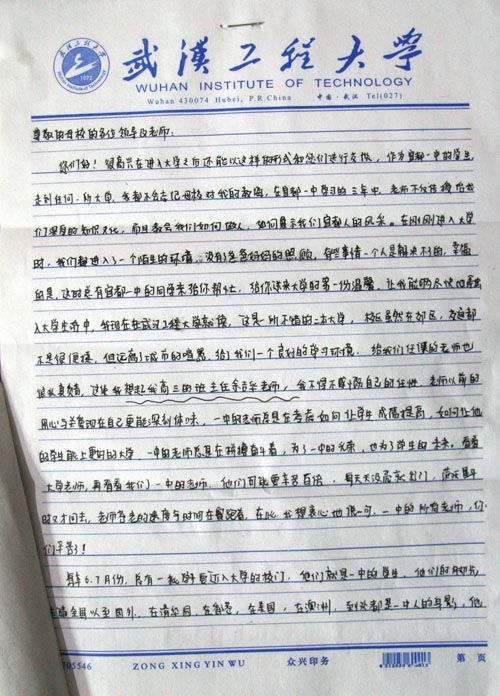 武漢工程大學
WUHAN INSTITUTE OF TECHNOLOGY
Wuhan 430074 Hubei, P.R.China 中国·武汉 Tel(027)
1972
尊敬的母校的各位领导及老师:
你们好!很高兴在进入大学之后还能以这样的形式和您们进行交报,作为宜都一中的学生,
走到任何一所大学,我都不会忘记母校对我的教诲,在宜都一中学习的三年中,老师不仅传授给我
们深厚的知识文化,而且教会我们如何做人,如何展示我们宜都人的风采。在刚刚进入大学
时,我们都进入了一个陌生的环境,没有了爸爸妈妈的照顾,有些事情一个人是解决不了的,幸运
的是,这时总有宜都一中的同学来给你帮忙,给你送来大学的第一份温馨,让我能够尽快的
入大学生活中,我现在在武汉工程大学就读,这是一所不错的二本大学,校区虽然在郊区,交通都
不是很便捷,但远离了城市的喧嚣,给了我们一个良好的学习环境,给我们任课的老师也
很认真负责,这使我想起我高三的班主任余克华老师,我不得不暗自己的任性,老师以前的
用心与关爱现在自己更能深刻体味,一中的老师总是在考虑如何让学生成绩提高,如何让他
的学生能上更好的大学,一中的老师总是在拼搏奋斗着,为了一中的光荣,也为了学生的未来。看看
大学老师,再看看我们一中的老师,他们可能要辛苦百倍,每天天没亮就出门,
时又才回去,老师苍老的速度与时间在赛跑着,在此,我想衷心地俱一句:一中的所有老师,你
们辛苦了!
每年6.7月份,总有一批学子要迈入大学的校门,他们就是一中的学生,他们的
全国以至国外,在清华园,在首都,在美国,在澳洲,到处都是一中人的身影,他
705546 ZONG XING YIN WU 众兴印务 第 页